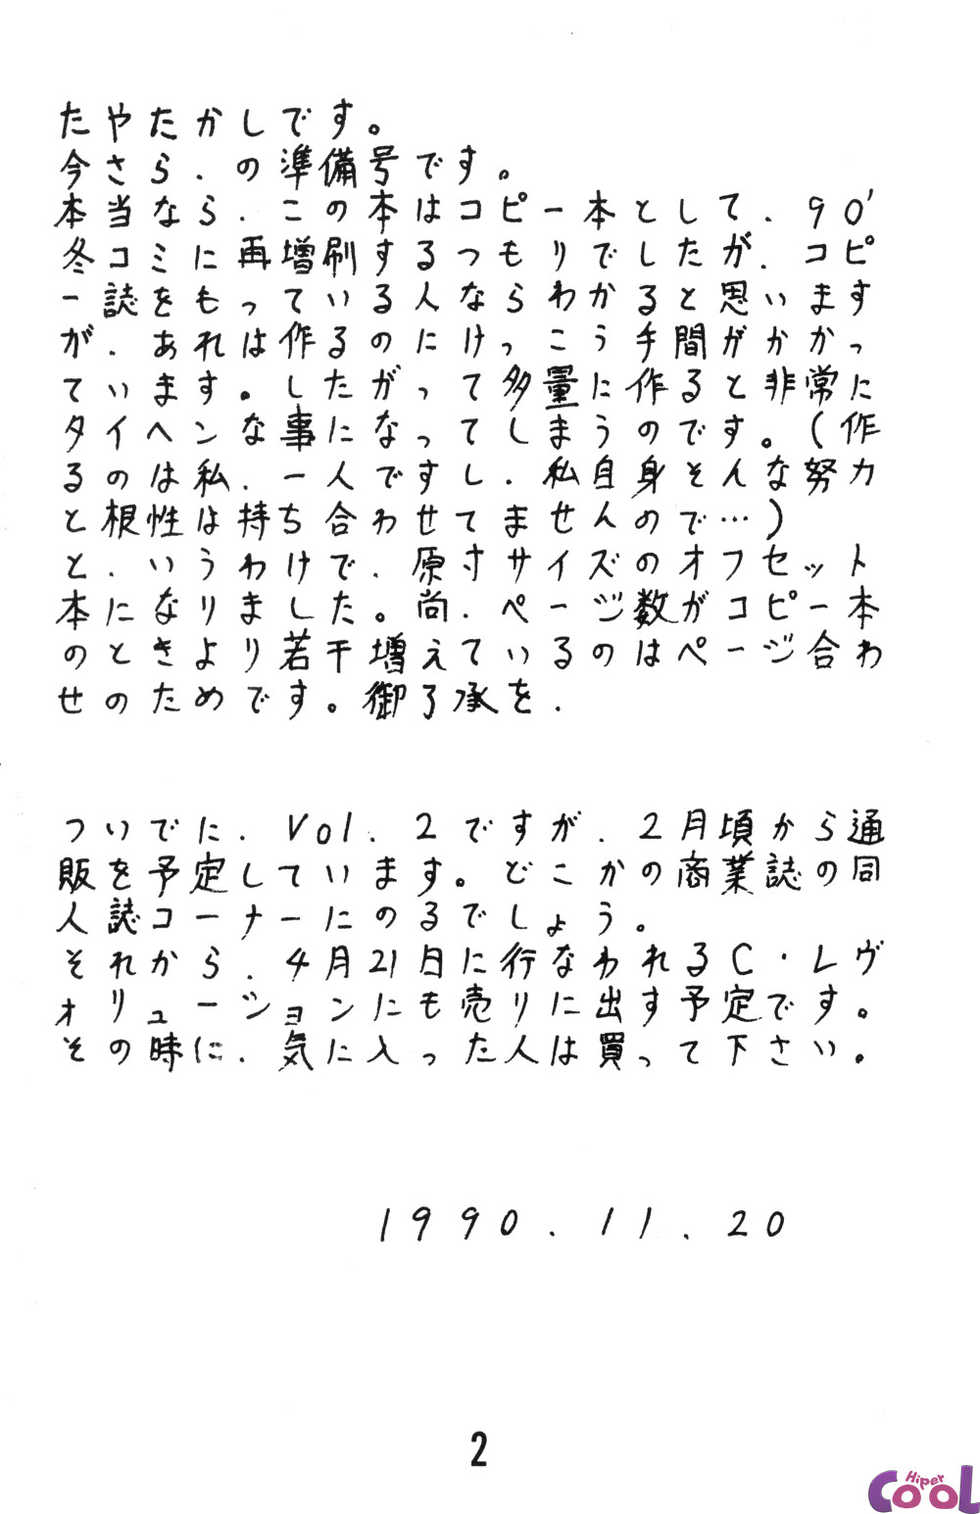 たやたかしです。
今さら、の準備号です。
本当なら、この本はコピー本として、90'
冬コミに再増刷するつもりでしたが、コピ
ー誌をもっている人ならわかると思います
が、あれは作るのにけっこう手間がかかっ
ています。したがって多量に作ると非常に
タイヘンな事になってしまうのです。(作
るのは私、一人ですし、私自身そんな努力
と根性は持ち合わせてませんので…)
と、いうわけで、原寸サイズのオフセット
本になりました。尚、ページ数がコピー本
のときより若干増えているのはページ合わ
せのためです。御了承を、
ついでに、Vol.2ですが、2月頃から通
販を予定しています。どこかの商業誌の同
人誌コーナーにのるでしょう。
それから、4月21日に行なわれるC・レヴ
ォリューションにも売りに出す予定です。
その時に、気に入った人は買って下さい。
1990.11.20
2
Hiper
COOL